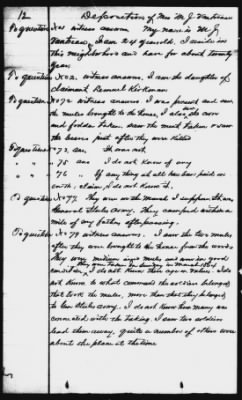 12 Deposition of Mrs M. J. Vantreas
To question No 1 witness answers My name is M J
Vantreas I am 24 years old. I reside in
this neighborhood and have for about twenty
years
To question No 2. witness answers, I am the daughter of
claimant Samuel Kirkman
To question No 72 witness answers I was present and saw
the mules brought to the house, I also saw corn
and fodder taken. saw the meat taken & saw
the beeves just after they were killed
To question 73, ans It was not.
" " 75 ans I do not know of any
" " 76 " If any thing at all has been paid on
on the claim I do not know it.
To question No 77. They were on the March I suppose. It was
General army. They camped within a
mile of my father
To question No 79 witness answers, I saw the two mules
after they were brought to the house from the woods
They were medium size mules and were in good
They were taken on Sunday in March 1864
condition, I do not know their age or value. I do
not know to what command the soldiers belonged
that took the mules, more than that they belonged
to the army. I do not know how many were
connected with the taking. I saw two soldiers
lead them away, quite a number of others were
about the place at the time